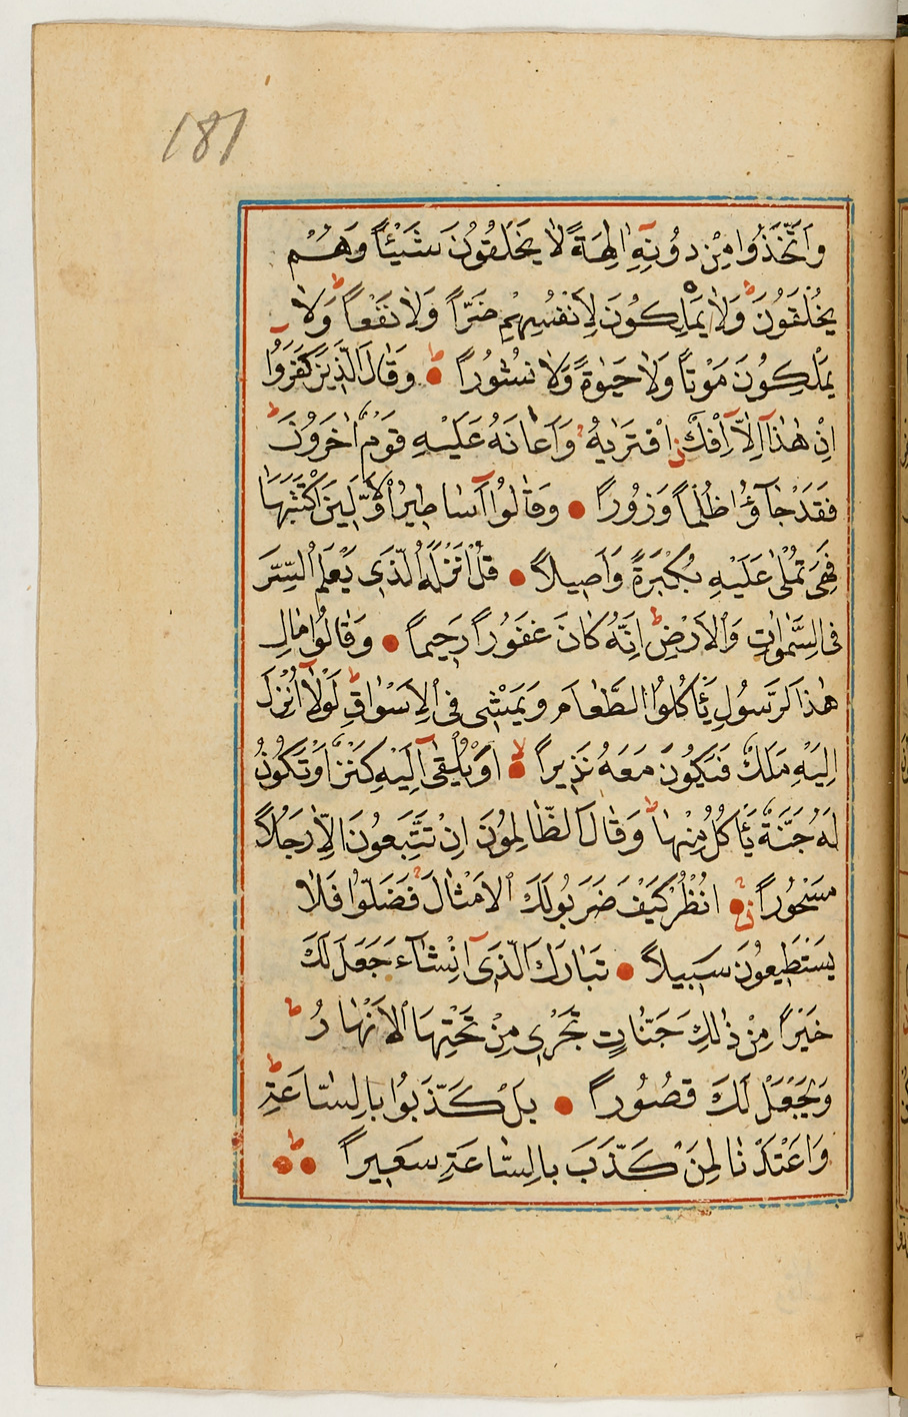 181
وَاتَّخَذُوا مِنْ دُونِهِ اٰلِهَةً لَا يَخْلُقُونَ شَيْئًا وَهُمْ
يُخْلَقُونَ ط وَلَا يَمْلِكُونَ لِاَنْفُسِهِمْ ضَرًّا وَلَا نَفْعًا ط وَلَا
يَمْلِكُونَ مَوْتًا وَلَا حَيٰوةً وَلَا نُشُورًا ط وَقَالَ الَّذِينَ كَفَرُوا
اِنْ هٰذَا اِلَّا اِفْكٌ نِ افْتَرٰيهُ وَاَعَانَهُ عَلَيْهِ قَوْمٌ اٰخَرُونَ ط
فَقَدْ جَآؤُا ظُلْمًا وَزُورًا وَقَالُوا اَسَاطِيرُ الْاَوَّلِينَ اكْتَتَبَهَا
فَهِيَ تُمْلٰى عَلَيْهِ بُكْرَةً وَاَصِيلًا قُلْ اَنْزَلَهُ الَّذِي يَعْلَمُ السِّرَّ
فِي السَّمٰوَاتِ وَالْاَرْضِ ط اِنَّهُ كَانَ غَفُورًا رَحِيمًا وَقَالُوا مَالِ
هٰذَا الرَّسُولِ يَأْكُلُ الطَّعَامَ وَيَمْشِي فِي الْاَسْوَاقِ ط لَوْلَا اُنْزِلَ
اِلَيْهِ مَلَكٌ فَيَكُونَ مَعَهُ نَذِيرًا لا اَوْ يُلْقٰى اِلَيْهِ كَنْزٌ اَوْ تَكُونُ
لَهُ جَنَّةٌ يَأْكُلُ مِنْهَا ط وَقَالَ الظَّالِمُونَ اِنْ تَتَّبِعُونَ اِلَّا رَجُلًا
مَسْحُورًا انْظُرْ كَيْفَ ضَرَبُوا لَكَ الْاَمْثَالَ فَضَلُّوا فَلَا
يَسْتَطِيعُونَ سَبِيلًا تَبَارَكَ الَّذِي اِنْ شَآءَ جَعَلَ لَكَ
خَيْرًا مِنْ ذٰلِكَ جَنَّاتٍ تَجْرِي مِنْ تَحْتِهَا الْاَنْهَارُ ط
وَيَجْعَلْ لَكَ قُصُورًا بَلْ كَذَّبُوا بِالسَّاعَةِ ط
وَاَعْتَدْنَا لِمَنْ كَذَّبَ بِالسَّاعَةِ سَعِيرًا ط